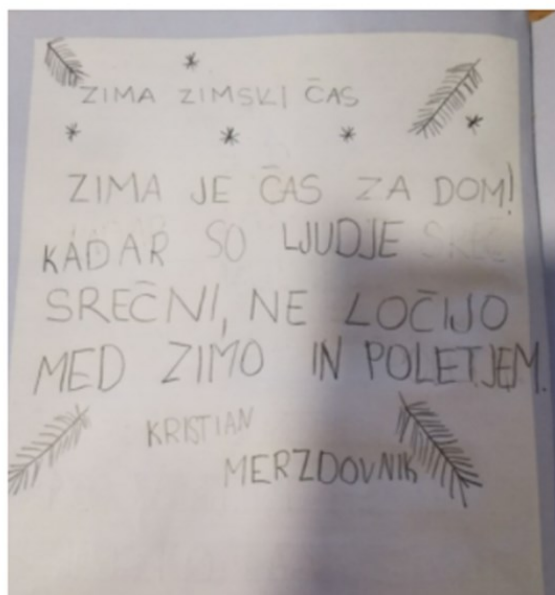 ZIMA ZIMSKI ČAS
ZIMA JE ČAS ZA DOM!
KADAR SO LJUDJE
SREČNI, NE LOČIJO
MED ZIMO IN POLETJEM.
KRISTIAN
MERZDOVNIK